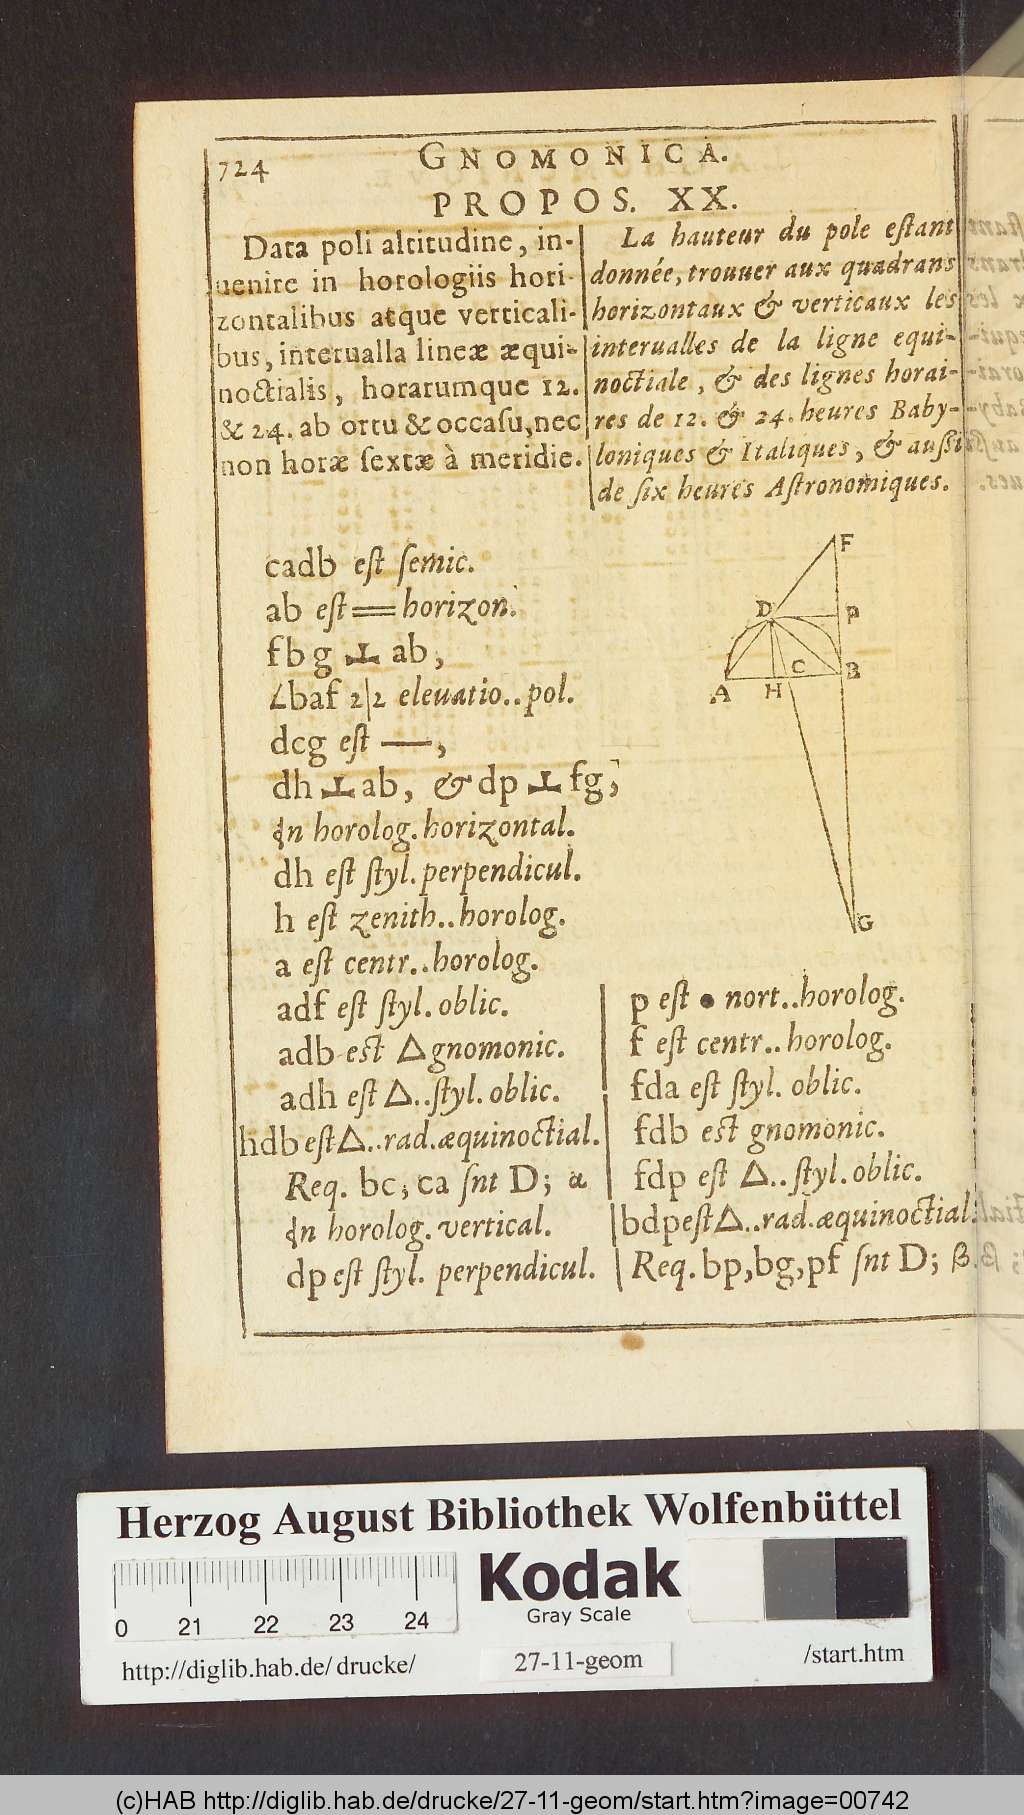 724
GNOMONICA.
PROPOS. XX.
Data poli altitudine, in-
uenire in horologiis hori-
zontalibus atque verticali-
bus, interualla lineæ æqui-
noctialis, horarumque 12.
& 24. ab ortu & occaſu, nec
non horæ ſextæ à meridie.
La hauteur du pole eſtant
donnée, trouuer aux quadrans
horizontaux & verticaux les
interualles de la ligne equi-
noctiale, & des lignes horai-
res de 12. & 24. heures Baby-
loniques & Italiques, & auſſi
de ſix heures Aſtronomiques.
F
D
P
C
B
A
H
G
cadb eſt ſemic.
ab eſt == horizon.
fbg ⊥ ab,
∠baf 2|2 eleuatio..pol.
dcg eſt —,
dh ⊥ ab, & dp ⊥ fg;
In horolog. horizontal.
dh eſt ſtyl. perpendicul.
h eſt zenith..horolog.
a eſt centr..horolog.
adf eſt ſtyl. oblic.
adb eſt △ gnomonic.
adh eſt △..ſtyl. oblic.
hdb eſt △..rad. æquinoctial.
Req. bc, ca ſnt D; α
In horolog. vertical.
dp eſt ſtyl. perpendicul.
p eſt ● nort..horolog.
f eſt centr..horolog.
fda eſt ſtyl. oblic.
fdb eſt gnomonic.
fdp eſt △..ſtyl. oblic.
bdp eſt △..rad. æquinoctial.
Req. bp, bg, pf ſnt D; β.
Herzog August Bibliothek Wolfenbüttel
Kodak
Gray Scale
0 21 22 23 24
http://diglib.hab.de/drucke/
27-11-geom
/start.htm
(c)HAB http://diglib.hab.de/drucke/27-11-geom/start.htm?image=00742